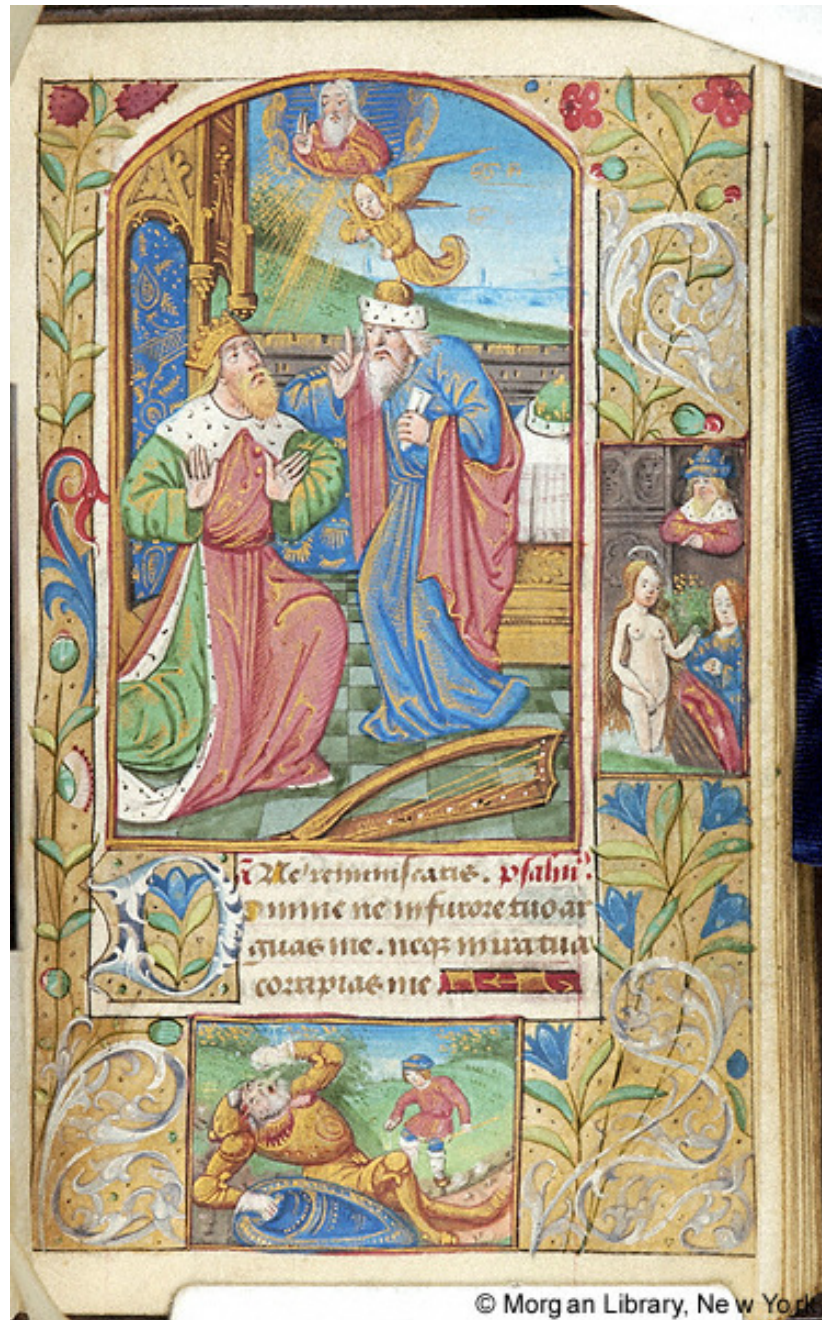 Ne reminiscaris. psalm̄⁹.
Domine ne in furore tuo ar
guas me. neqꝫ in ira tua
corripias me
© Morgan Library, New York